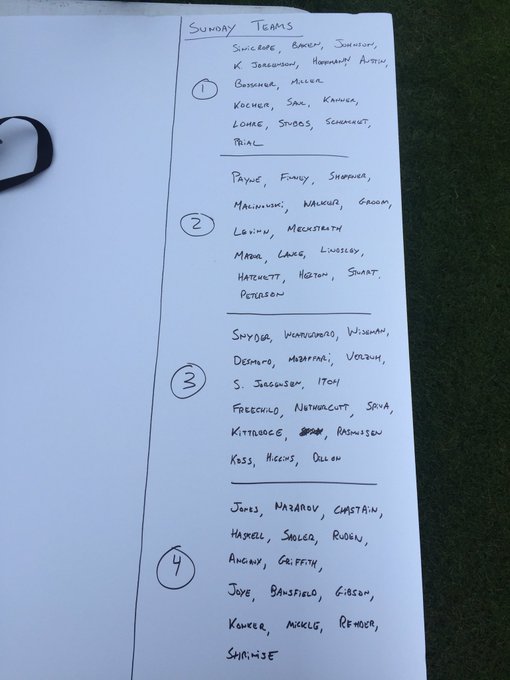 SUNDAY TEAMS
SINICROPE, BAKEN, JOHNSON,
K. JORGENSON, HOFFMANN, AUSTIN,
BOSSCHER, MILLER
1
KOCHER, SAUL, KANNER,
LOHRE, STUBBS, SCHLACHLET,
PRIAL
PAYNE, FINNEY, SHOFFNER,
MALINOWSKI, WALKER, GROOM,
2
LEVINN, MECKSTROTH
MAZUR, LANCE, LINDSLEY,
HATCHETT, HELTON, STUART,
PETERSON
SNYDER, WEATHERFORD, WISEMAN,
DESMOND, MOZAFFARI, VERZUH,
3
S. JORGENSEN, ITOH
FREECHILD, NETHERCUTT, SPIVA,
KITTREDGE, RASMUSSEN
KOSS, HIGGINS, DILLON
JONES, NAZAROV, CHASTAIN,
HASKELL, SADLER, RUDEN,
4
GRIFFITH,
JOYE, BANSFIELD, GIBSON,
KONKER, MICKLE, REHDER,